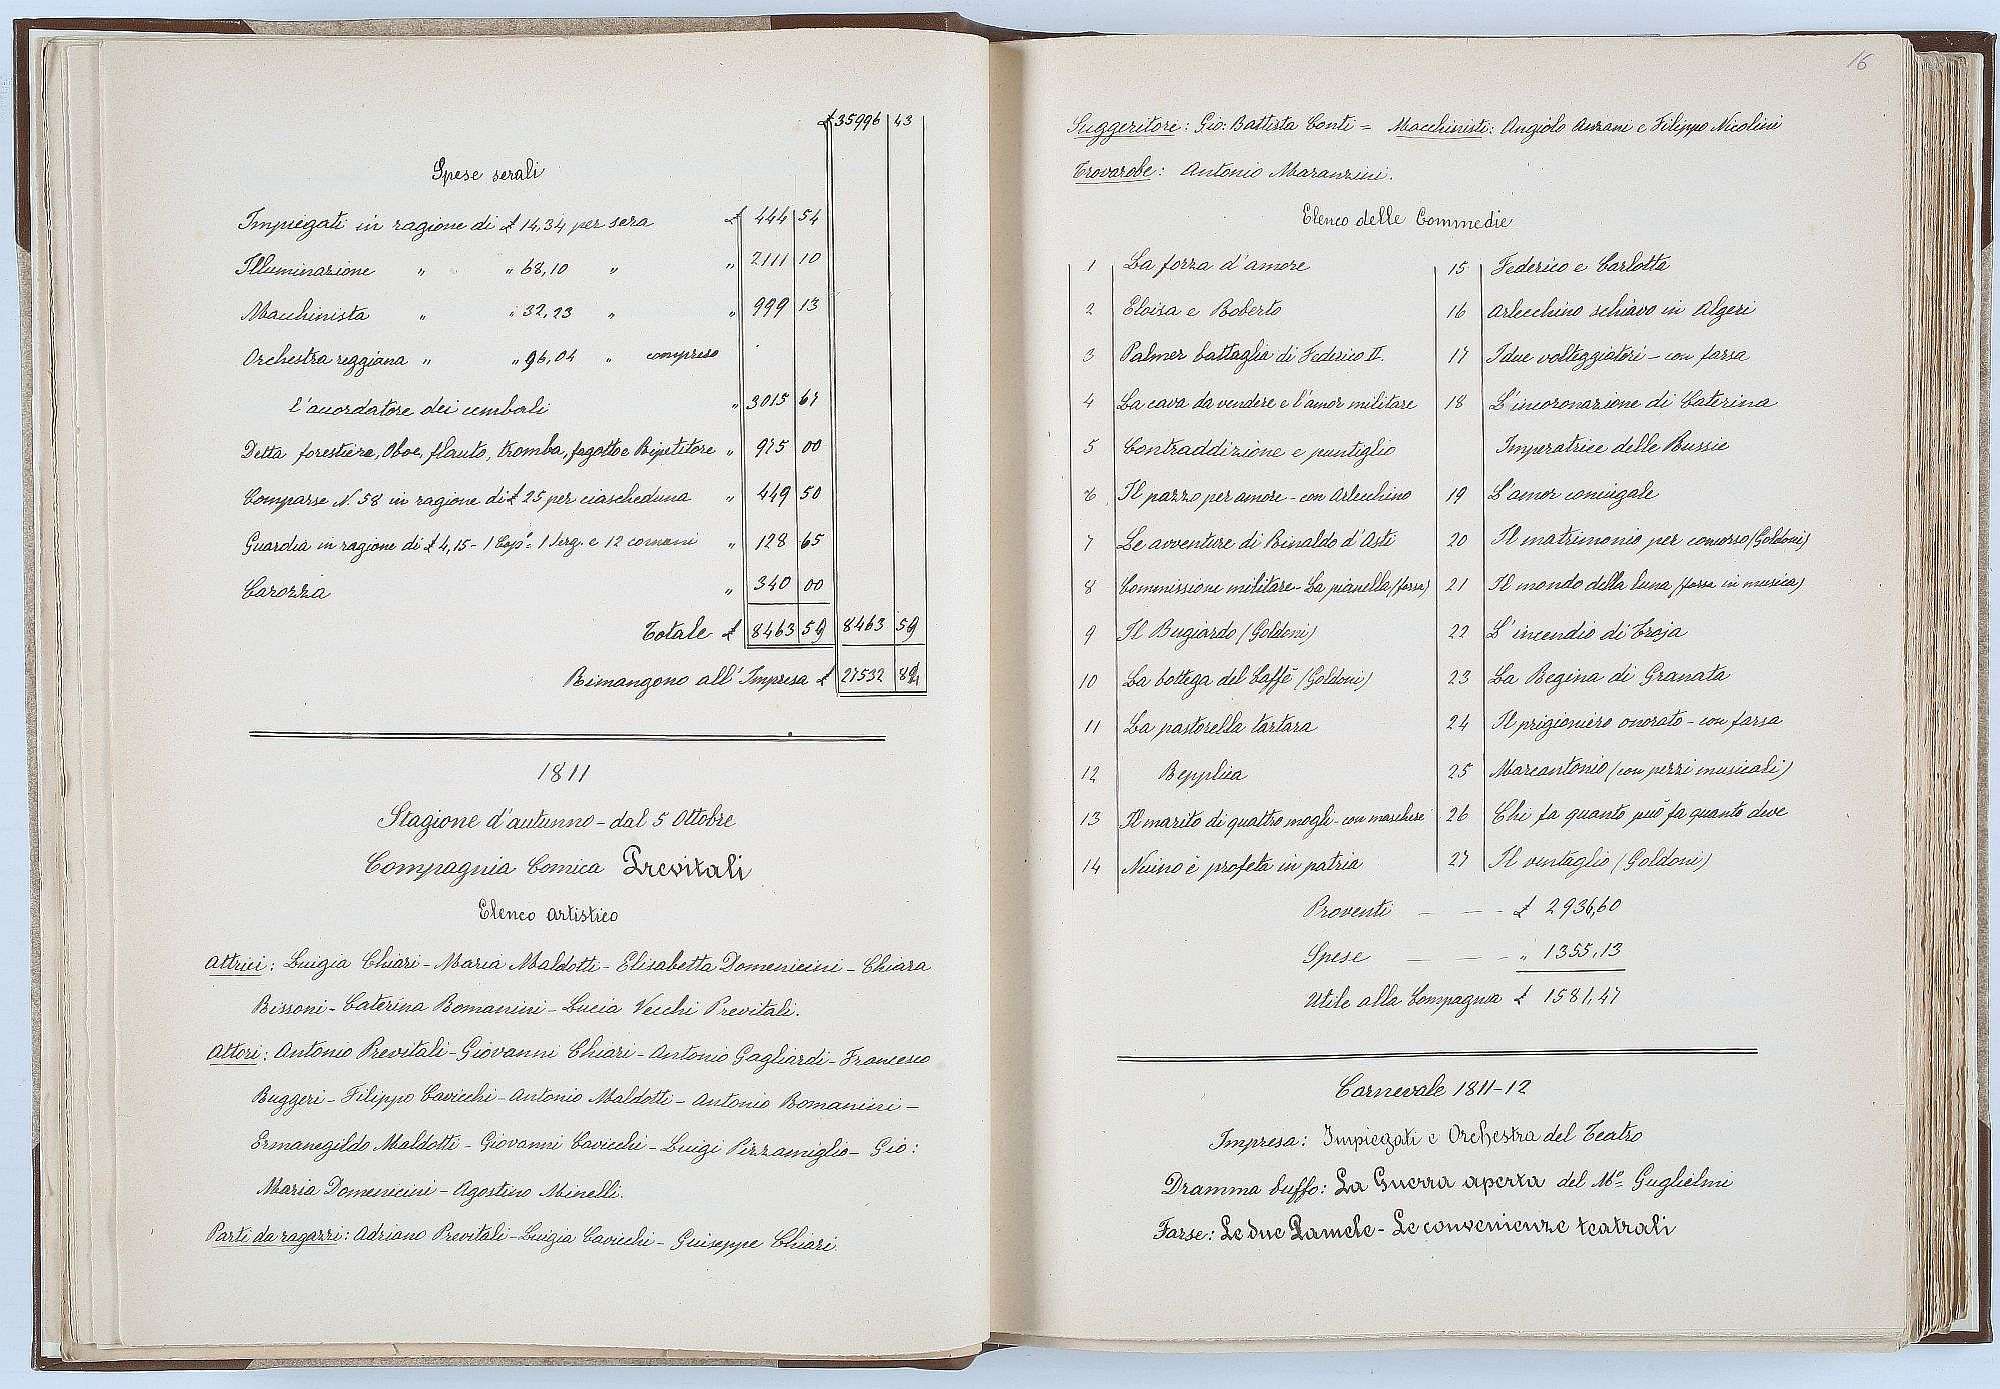 £ 35996 43
Spese serali
Impiegati in ragione di £ 14,34 per sera £ 444 54
Illuminazione " " 68,10 " " 2111 10
Macchinista " " 32,23 " " 999 13
Orchestra reggiana " " 96,04 " compreso
l'accordatore dei cembali " 3015 67
Detta forestiera, Oboe, flauto, tromba, fagotto e Ripetitore " 975 00
Comparse N. 58 in ragione di £ 25 per ciascheduna " 449 50
Guardia in ragione di £ 4,15 - 1 Cap.º = 1 Serg. e 12 comuni " 128 65
Carozza " 340 00
Totale £ 8463 59 8463 59
Rimangono all'Impresa £ 27532 84
1811
Stagione d'autunno - dal 5 Ottobre
Compagnia Comica Previtali
Elenco artistico
Attrici: Luigia Chiari - Maria Maldotti - Elisabetta Domenicini - Chiara
Bissoni - Caterina Romanini - Lucia Vecchi Previtali.
Attori: Antonio Previtali - Giovanni Chiari - Antonio Gagliardi - Francesco
Ruggeri - Filippo Cavicchi - Antonio Maldotti - Antonio Romanini -
Ermanegildo Maldotti - Giovanni Cavicchi - Luigi Pizzamiglio - Gio:
Maria Domenicini - Agostino Minelli.
Parti da ragazzi: Adriano Previtali - Luigia Cavicchi - Guiseppe Chiari.
16
Suggeritore: Gio: Battista Conti = Macchinisti: Angiolo Anzani e Filippo Nicolini
Trovarobe: Antonio Maranzini.
Elenco delle Commedie
1 La forza d'amore
2 Eloisa e Roberto
3 Palmer battaglia di Federico II.
4 La cava da vendere e l'amor militare
5 Contraddizione e puntiglio
6 Il pazzo per amore - con Arlecchino
7 Le avventure di Rinaldo d'Asti
8 Commissione militare - La pianella (farsa)
9 Il Bugiardo (Goldoni)
10 La bottega del Caffè (Goldoni)
11 La pastorella tartara
12 Repplica
13 Il marito di quattro mogli - con maschere
14 Nuino è profeta in patria
15 Federico e Carlotta
16 Arlecchino schiavo in Algeri
17 I due volteggiatori - con farsa
18 L'incoronazione di Caterina
Imperatrice delle Russie
19 L'amor coniugale
20 Il matrimonio per concorso (Goldoni)
21 Il mondo della luna (farsa in musica)
22 L'incendio di Troja
23 La Regina di Granata
24 Il prigioniero onorato - con farsa
25 Marcantonio (con pezzi musicali)
26 Chi fa quanto può fa quanto deve
27 Il ventaglio (Goldoni)
Proventi — — - £ 2936,60
Spese — — - " 1355,13
Utile alla Compagnia £ 1581,47
Carnevale 1811-12
Impresa: Impiegati e Orchestra del Teatro
Dramma buffo: La Guerra aperta del Mº Guglielmi
Farse: Le due Pamele - Le convenienze teatrali